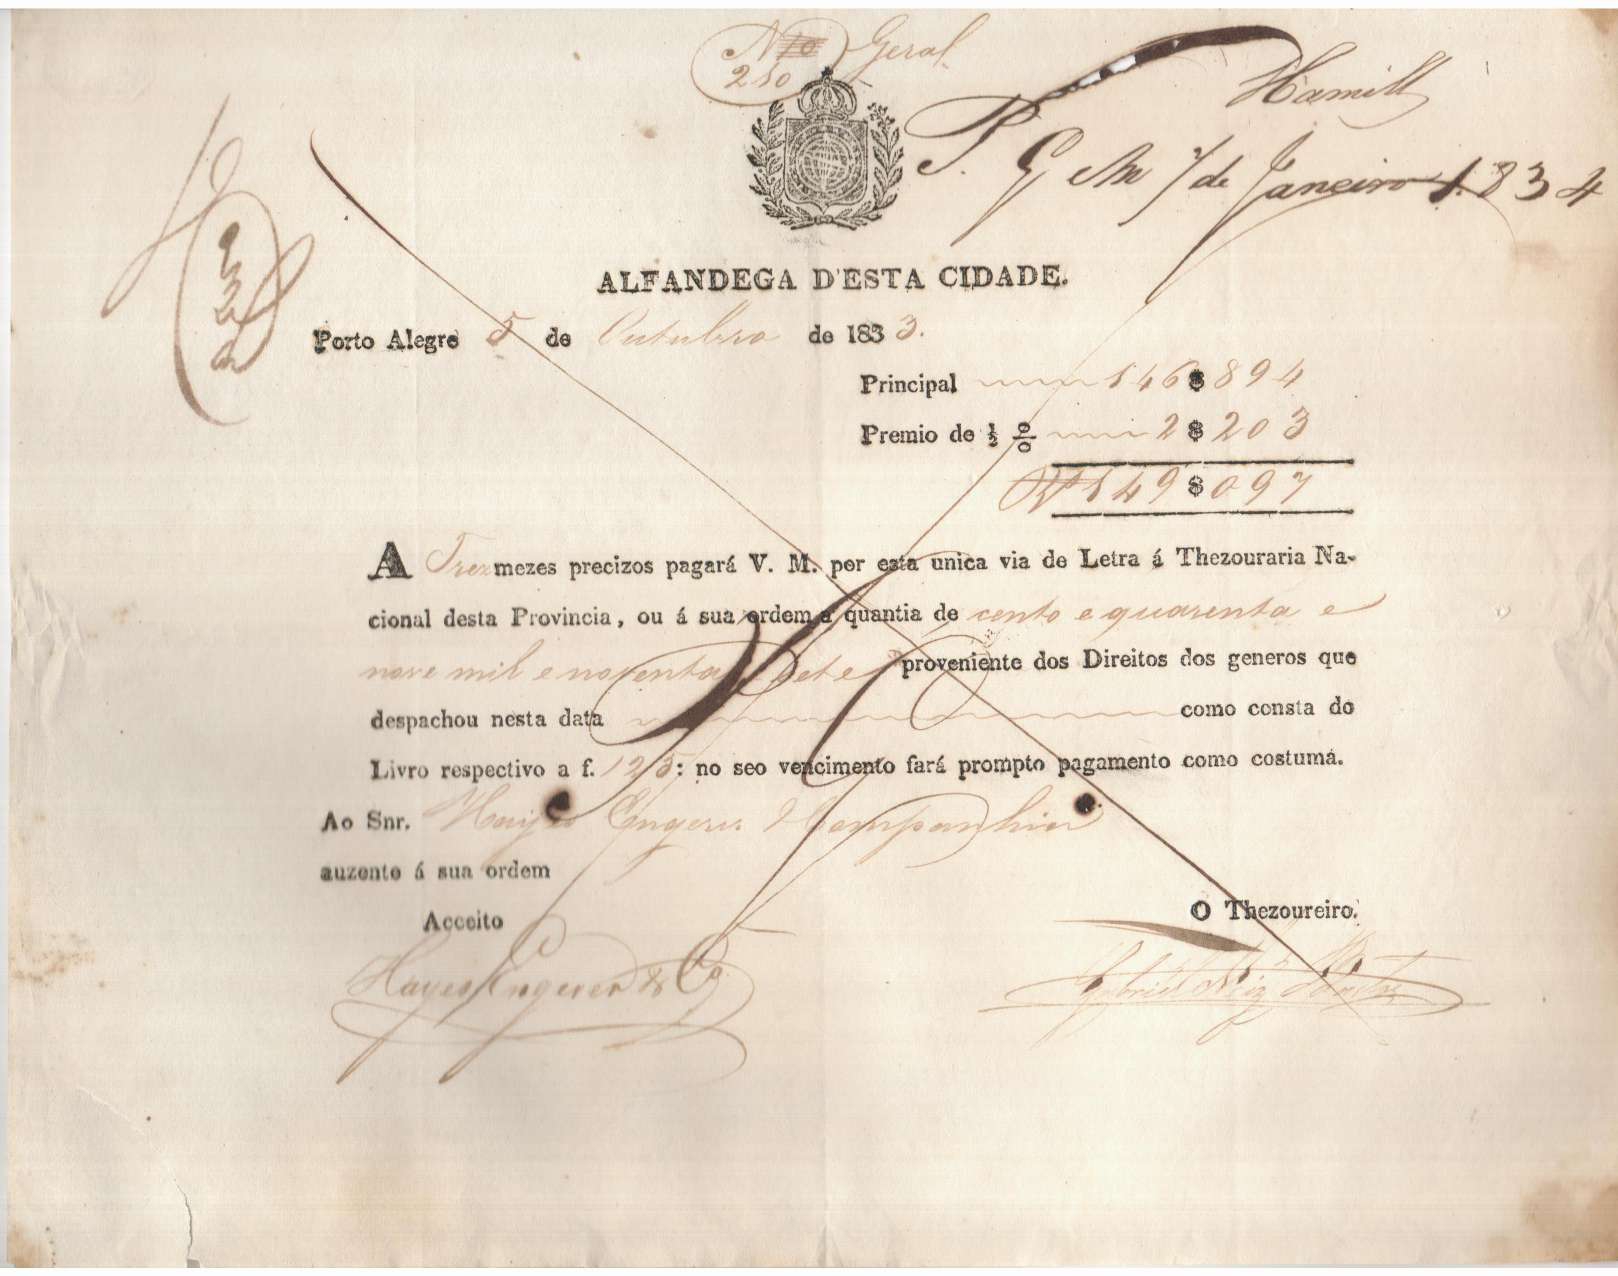 Geral
210
Hamill
P. G. em 7 de Janeiro 1834
ALFANDEGA D'ESTA CIDADE.
Porto Alegre 5 de Outubro de 1833.
Principal 146$894
Premio de ½ % 2$203
Rs 149$097
A Trez mezes precizos pagará V. M. por esta unica via de Letra á Thezouraria Na-
cional desta Provincia, ou á sua ordem a quantia de cento e quarenta e
nove mil e noventa e sete proveniente dos Direitos dos generos que
despachou nesta data como consta do
Livro respectivo a f. 125: no seo vencimento fará prompto pagamento como costuma.
Ao Snr. Hayes Engerer & Companhia
auzente á sua ordem
Acceito
O Thezoureiro.
Hayes Engerer & Co.
Gabriel